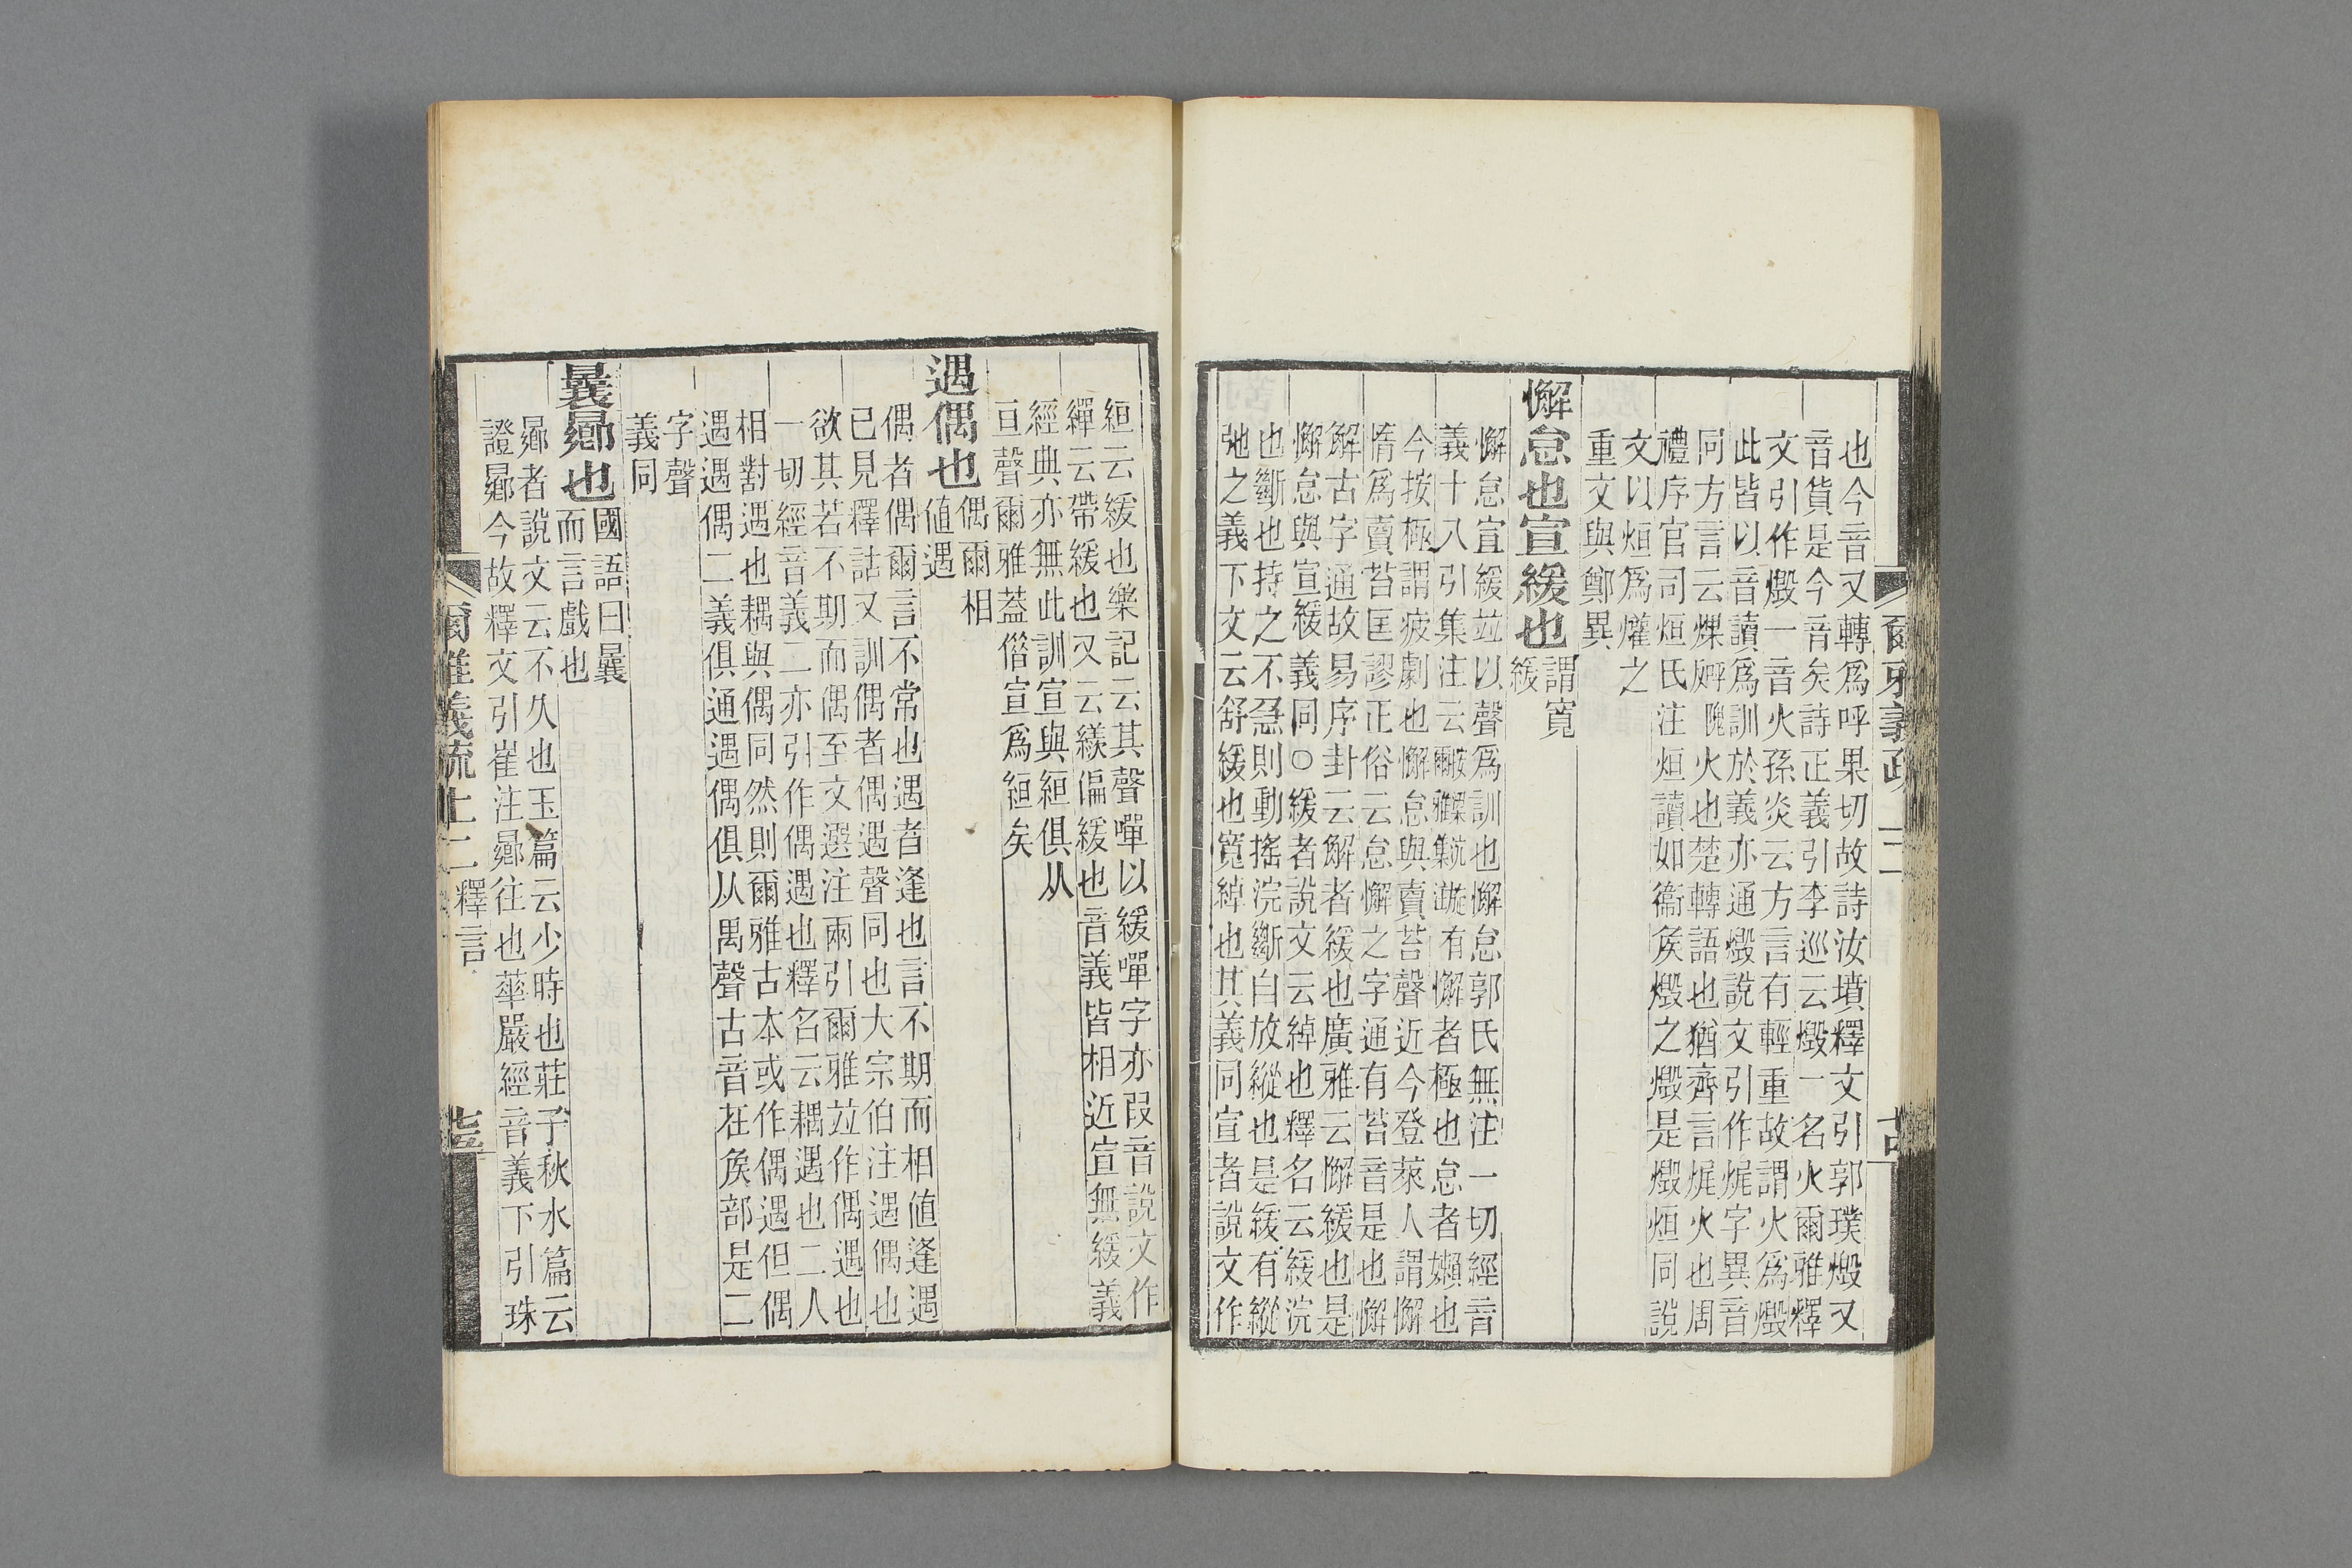 也今音又轉爲呼果切故詩汝墳釋文引郭璞燬又
音貨是今音矣詩正義引李巡云燬一名火爾雅釋
文引作燬一音火孫炎云方言有輕重故謂火爲燬
此皆以音讀爲訓於義亦通燬說文引作烜字異音
同方言云煤火也楚轉語也猶齊言烜火也周
禮序官司烜氏注烜讀如衞矦燬之燬是燬烜同說
文以烜爲爟之
重文與鄭異
懈怠也宣緩也
謂寬
緩
懈怠宣緩竝以聲爲訓也懈怠郭氏無注一切經音
義十八引集注云有懈者極也怠者嬾也
今按極謂疲劇也懈怠與賣苔聲近今登萊人謂懈
惰爲賣苔匡謬正俗云怠懈之字通有苔音是也懈
解古字通故易序卦云解者緩也廣雅云懈緩也是
懈怠與宣緩義同○緩者說文云綽也釋名云緩浣
也斷也持之不急則動搖浣斷自放縱也是緩有縱
弛之義下文云舒緩也寬綽也其義同宣者說文作
爾雅義疏
絙云緩也樂記云其聲嘽以緩嘽字亦叚音說文作
繟云帶緩也又云緂偏緩也音義皆相近宣無緩義
經典亦無此訓宣與絙俱从
亘聲爾雅蓋借宣爲絙矣
遇偶也
偶爾相
値遇
偶者偶爾言不常也遇者逢也言不期而相値逢遇
已見釋詁又訓偶者偶遇聲同也大宗伯注遇偶也
欲其若不期而偶至文選注兩引爾雅竝作偶遇也
一切經音義二亦引作偶遇也釋名云耦遇也二人
相對遇也耦與偶同然則爾雅古本或作偶遇但偶
遇遇偶二義俱通遇偶俱从禺聲古音在矦部是二
字聲
義同
曩曏也
國語曰曩
而言戲也
曏者說文云不久也玉篇云少時也莊子秋水篇云
證曏今故釋文引崔注曏往也華嚴經音義下引珠
爾雅義疏上二
釋言